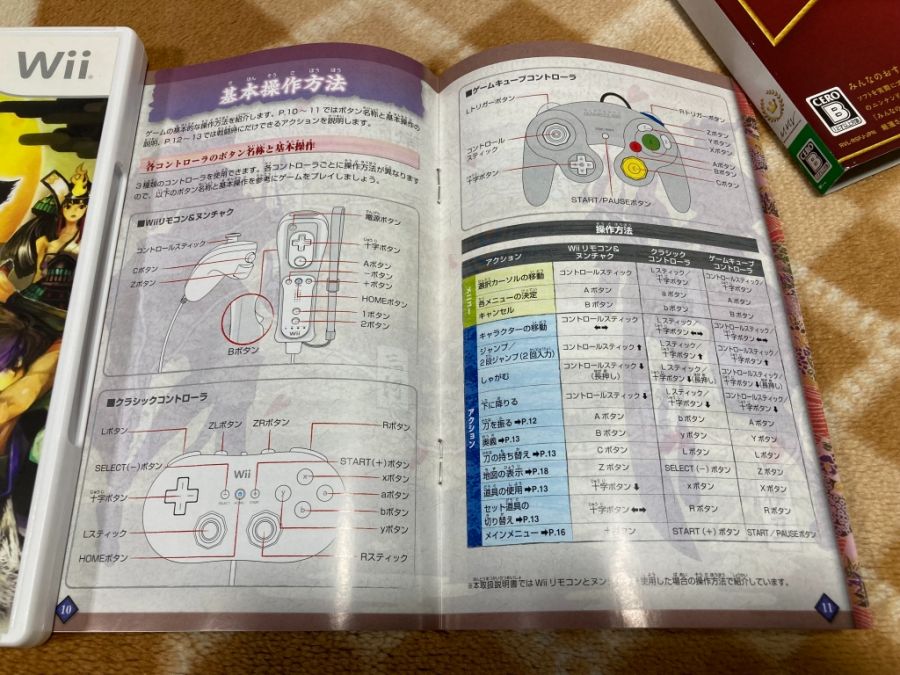 Wii
基本操作方法
ゲームの基本的な操作方法を紹介します。P.10〜11ではボタン名称と基本操作の
説明、P.12〜13では戦闘時にだけできるアクションを説明します。
各コントローラのボタン名称と基本操作
3種類のコントローラを使用できます。各コントローラごとに操作方法が異なります
ので、以下のボタン名称と基本操作を参考にゲームをプレイしましょう。
■Wiiリモコン&ヌンチャク
コントロールスティック
Cボタン
Zボタン
電源ボタン
十字ボタン
Aボタン
−ボタン
+ボタン
HOMEボタン
1ボタン
2ボタン
Bボタン
Wii
■クラシックコントローラ
Lボタン
ZLボタン
ZRボタン
Rボタン
SELECT(−)ボタン
START(+)ボタン
十字ボタン
xボタン
aボタン
bボタン
yボタン
Lスティック
Rスティック
HOMEボタン
Wii
10
■ゲームキューブコントローラ
Lトリガーボタン
Rトリガーボタン
コントロール
スティック
十字ボタン
Zボタン
Yボタン
Xボタン
Aボタン
Bボタン
Cボタン
START/PAUSEボタン
操作方法
アクション Wiiリモコン&ヌンチャク クラシックコントローラ ゲームキューブコントローラ
メニュー
選択カーソルの移動 コントロールスティック Lスティック/十字ボタン コントロールスティック/十字ボタン
各メニューの決定 Aボタン aボタン Aボタン
キャンセル Bボタン bボタン Bボタン
アクション
キャラクターの移動 コントロールスティック⬅➡ Lスティック/十字ボタン⬅➡ コントロールスティック/十字ボタン⬅➡
ジャンプ/2段ジャンプ(2回入力) コントロールスティック⬆ Lスティック/十字ボタン⬆ コントロールスティック/十字ボタン⬆
しゃがむ コントロールスティック⬇(長押し) Lスティック/十字ボタン⬇(長押し) コントロールスティック/十字ボタン⬇(長押し)
下に降りる コントロールスティック⬇ Lスティック/十字ボタン⬇ コントロールスティック/十字ボタン⬇
刀を振る➡P.12 Aボタン bボタン Aボタン
奥義➡P.13 Bボタン yボタン Yボタン
刀の持ち替え➡P.13 Cボタン Lボタン Lボタン
地図の表示➡P.18 Zボタン SELECT(−)ボタン Zボタン
道具の使用➡P.13 十字ボタン⬇ xボタン Xボタン
セット道具の切り替え➡P.13 十字ボタン⬅➡ Rボタン Rボタン
メインメニュー➡P.16 +ボタン START(+)ボタン START/PAUSEボタン
※本取扱説明書ではWiiリモコンとヌンチャクを使用した場合の操作方法で紹介しています。
11
みんなのおす
CERO
B